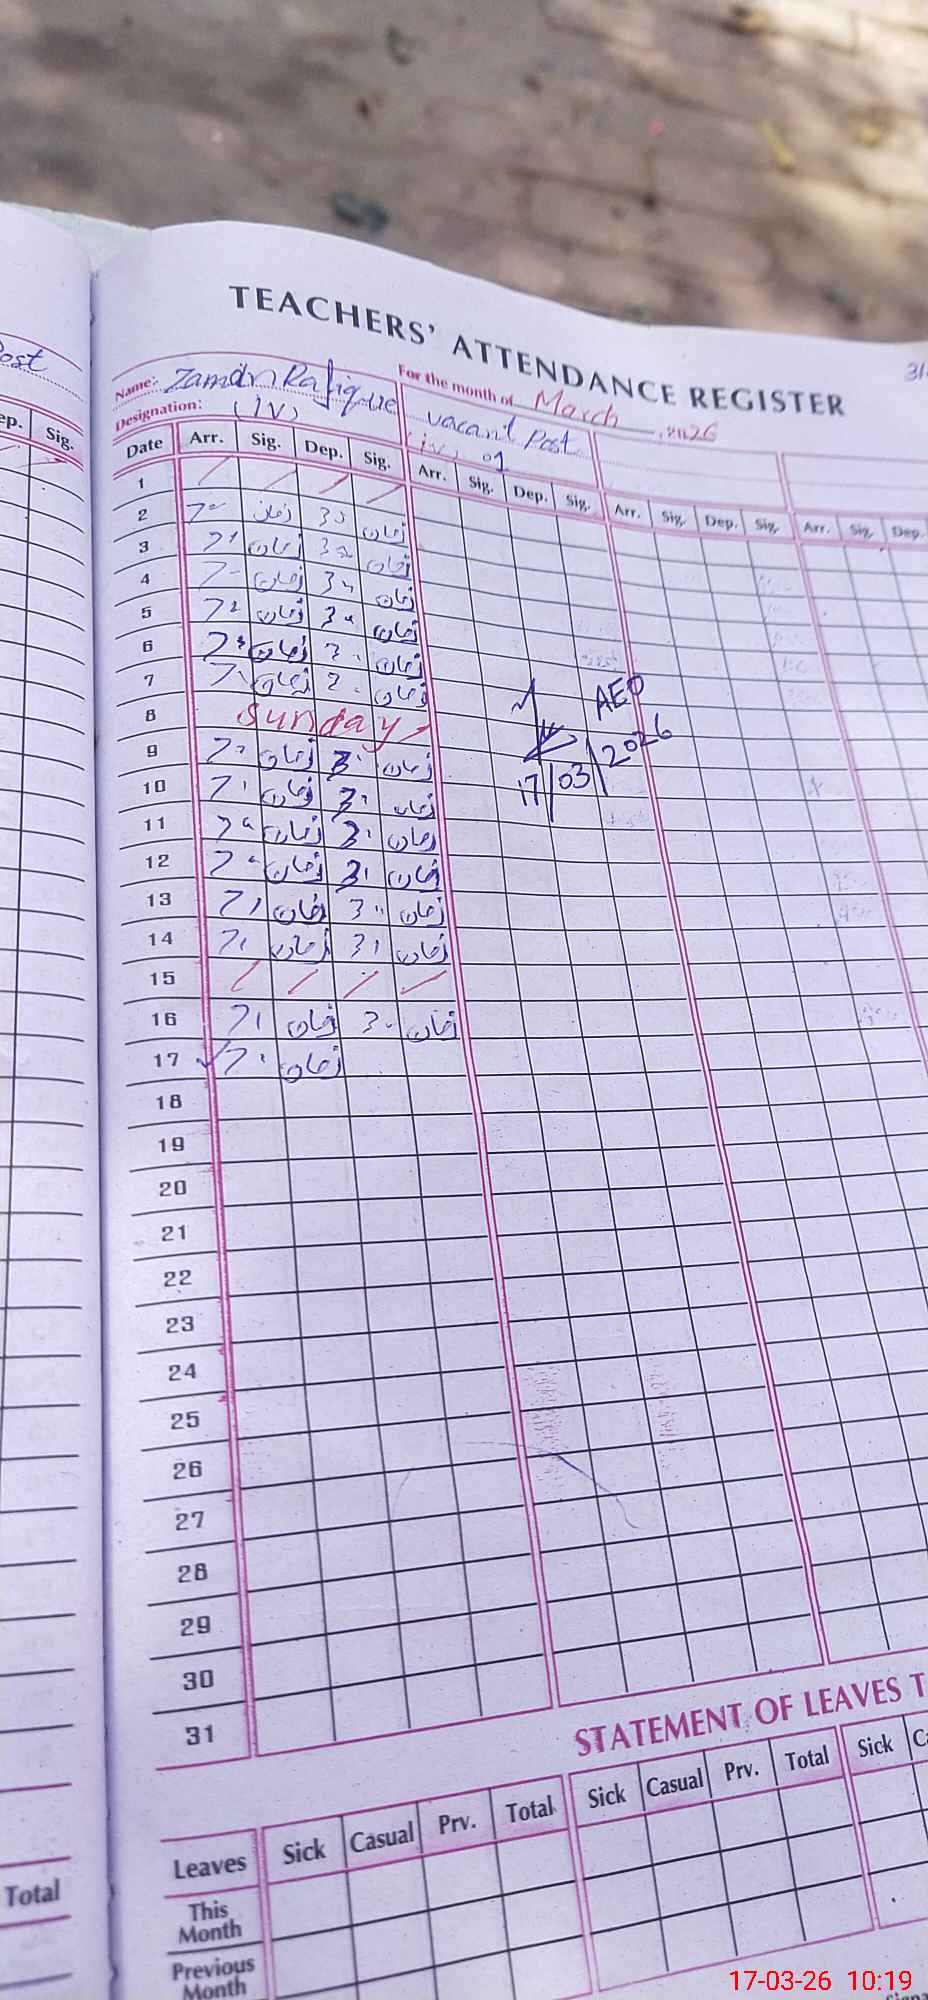 TEACHERS' ATTENDANCE REGISTER
Post
ep. Sig.
Name: Zaman Rafique
For the month of March, 2026
Designation: (IV)
vacant Post
(iv) 01
Date Arr. Sig. Dep. Sig. Arr. Sig. Dep. Sig. Arr. Sig. Dep. Sig. Arr. Sig. Dep.
1 / / / /
2 زمان زمان
3 زمان زمان
4 زمان زمان
5 زمان زمان
6 زمان زمان
7 زمان زمان
8 Sunday
9 زمان زمان
10 زمان زمان
11 زمان زمان
12 زمان زمان
13 زمان زمان
14 زمان زمان
15 / / / /
16 زمان زمان
17 زمان
AEO
17/03/2026
18
19
20
21
22
23
24
25
26
27
28
29
30
31
STATEMENT OF LEAVES
Leaves Sick Casual Prv. Total Sick Casual Prv. Total Sick
This Month
Previous Month
Total
17-03-26 10:19